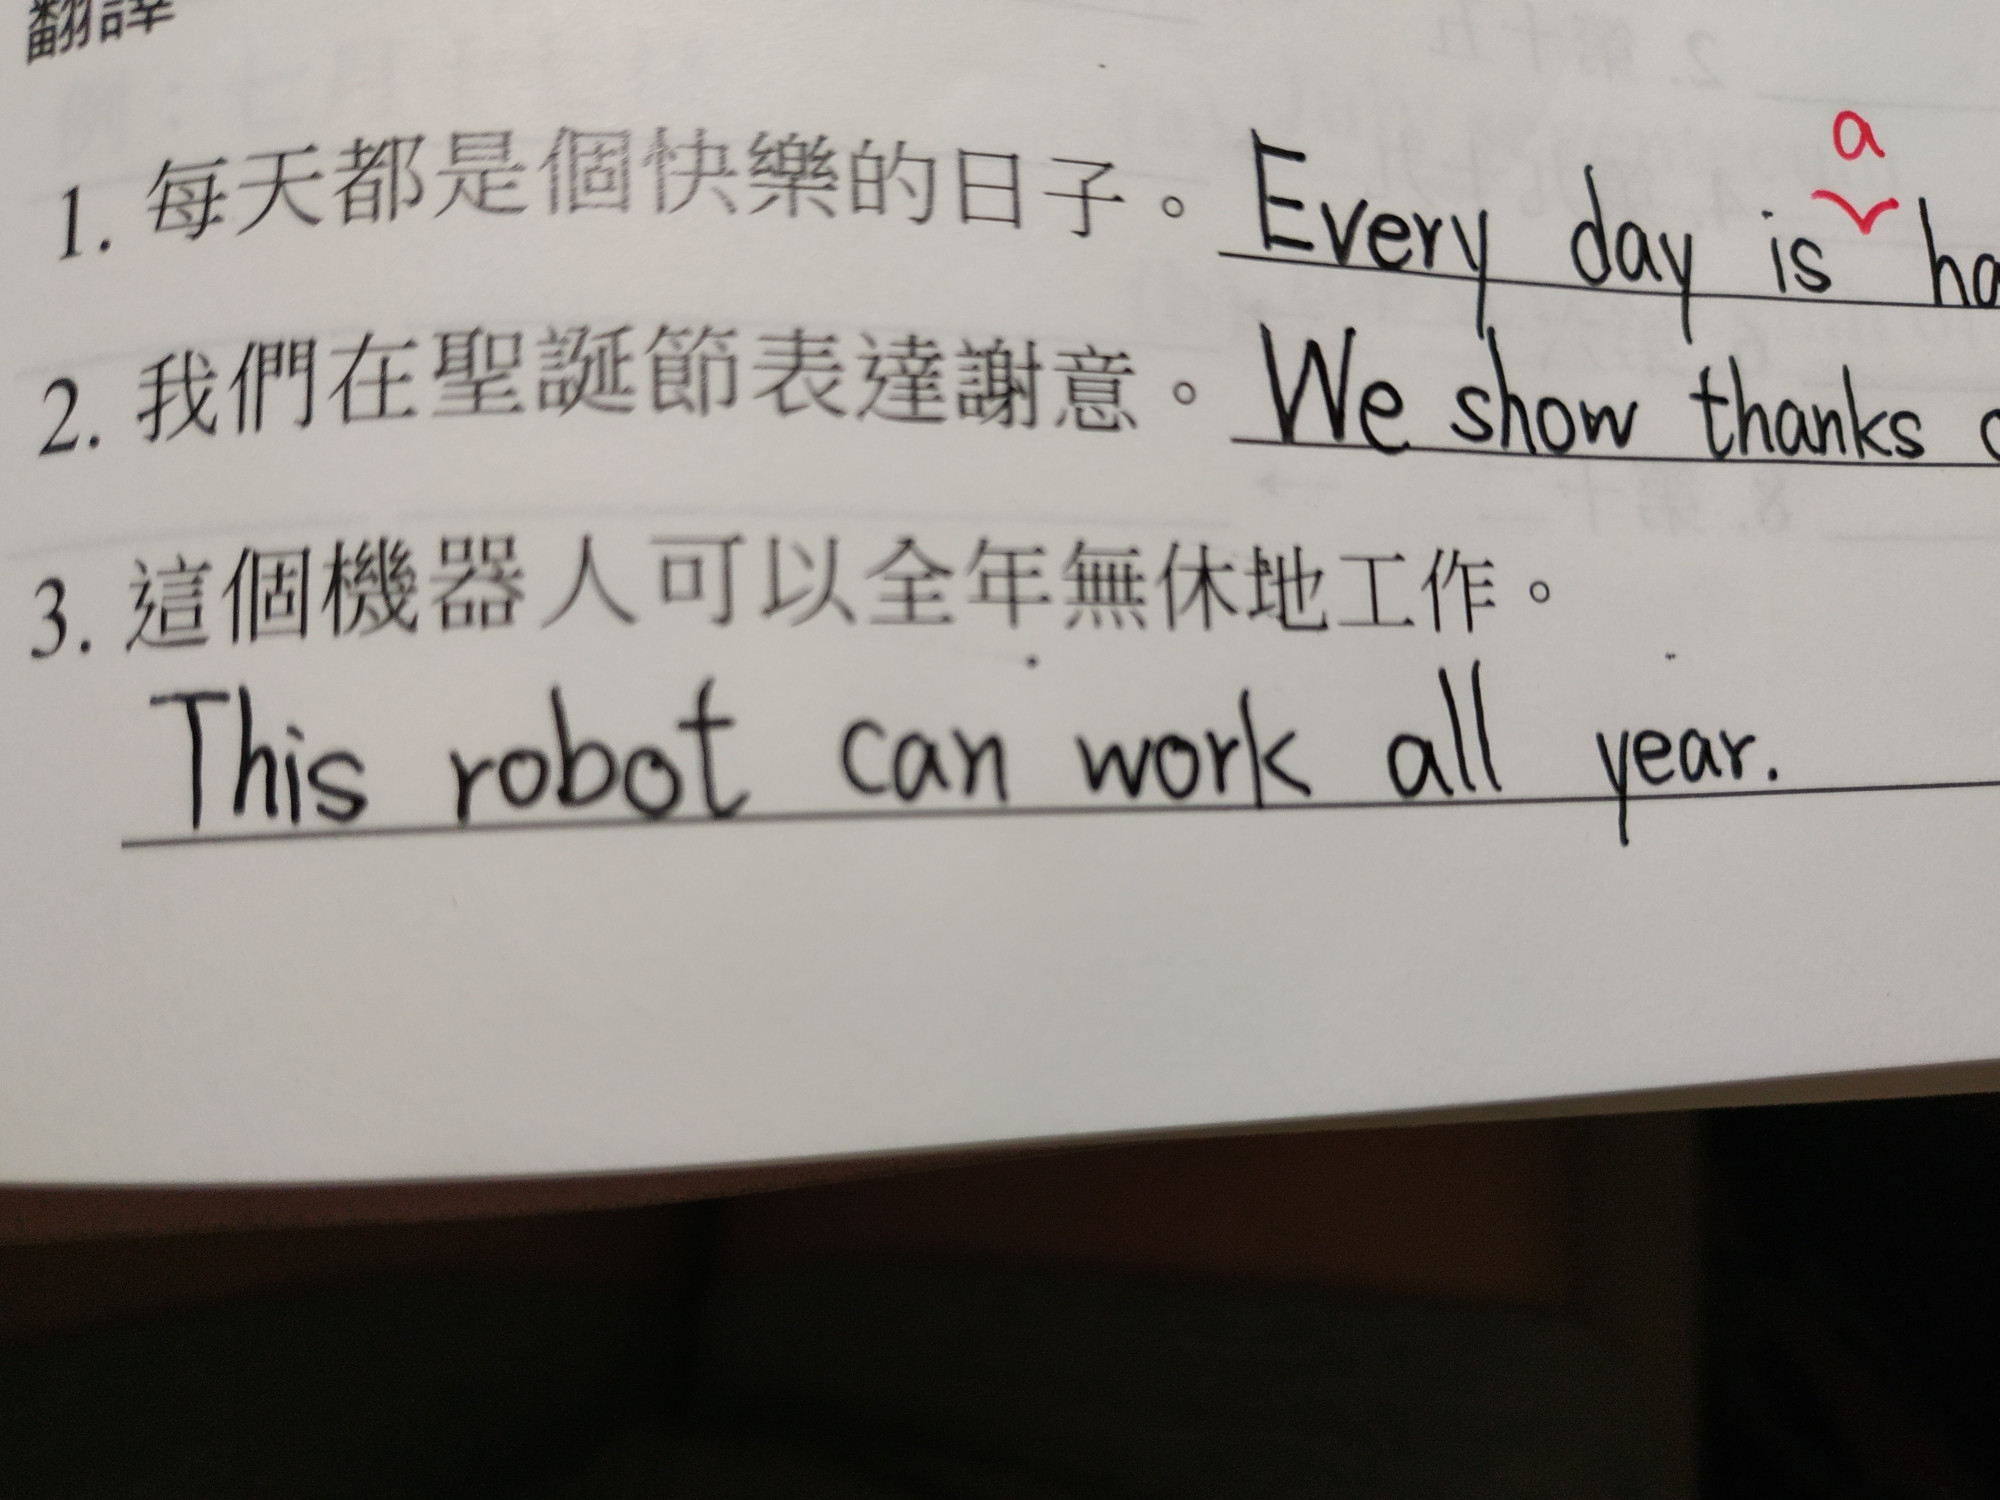 翻譯
1. 每天都是個快樂的日子。 Every day is a
2. 我們在聖誕節表達謝意。 We show thanks
3. 這個機器人可以全年無休地工作。
This robot can work all year.